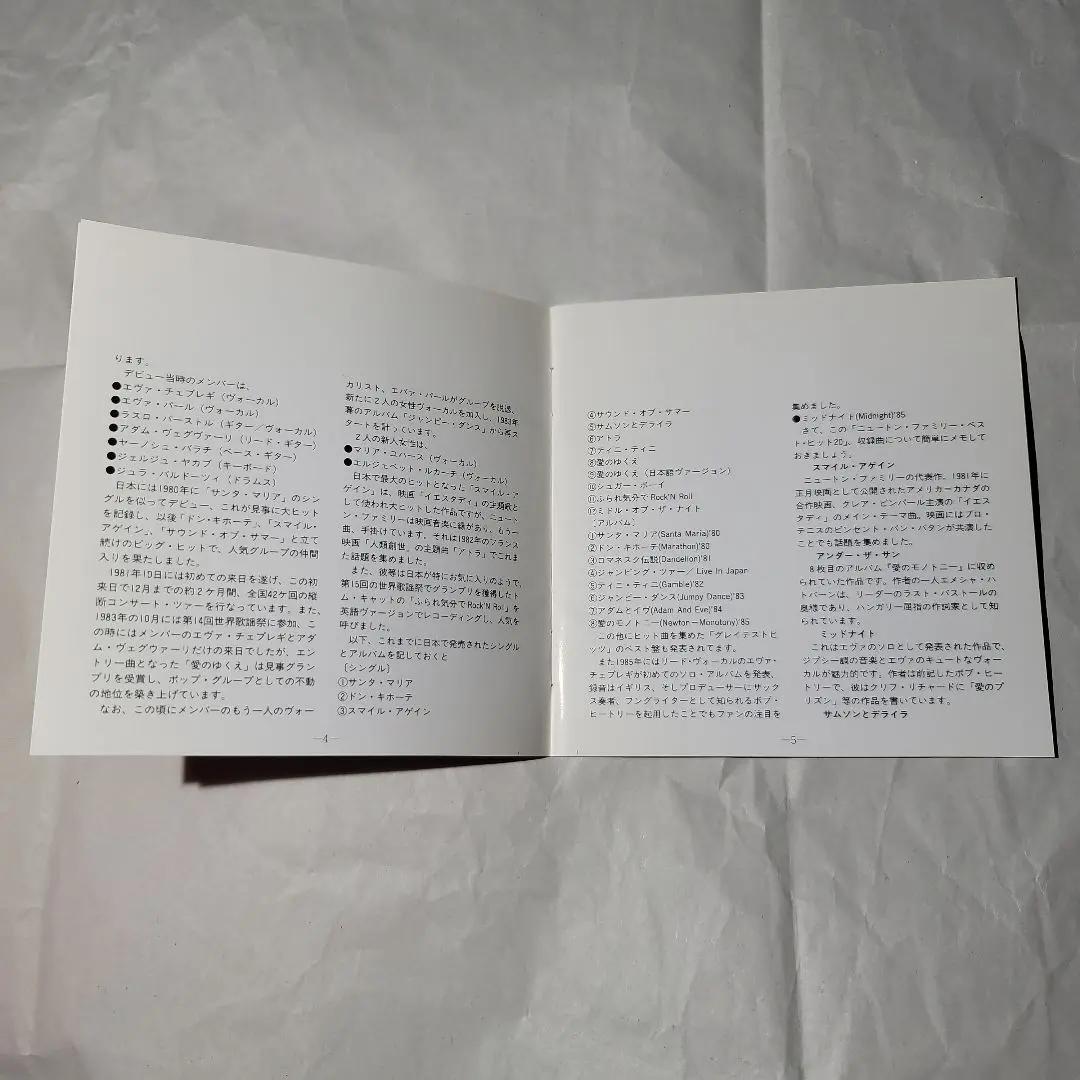 ります。
デビュー当時のメンバーは、
●エヴァ・チェプレギ（ヴォーカル）
●エヴァ・パール（ヴォーカル）
●ラスロ・パーストル（ギター／ヴォーカル）
●アダム・ヴェグヴァーリ（リード・ギター）
●ヤーノシュ・バラチ（ベース・ギター）
●ジェルジュ・ヤカブ（キーボード）
●ジュラ・バルドーツィ（ドラムス）
日本には1980年に「サンタ・マリア」のシン
グルを似ってデビュー、これが見事に大ヒット
を記録し、以後「ドン・キホーテ」、「スマイル・
アゲイン」、「サウンド・オブ・サマー」と立て
続けのビッグ・ヒットで、人気グループの仲間
入りを果たしました。
1981年10月には初めての来日を遂げ、この初
来日で12月までの約２ケ月間、全国42ケ回の縦
断コンサート・ツァーを行なっています。また、
1983年の10月には第14回世界歌謡祭に参加、こ
の時にはメンバーのエヴァ・チェプレギとアダ
ム・ヴェグヴァーリだけの来日でしたが、エン
トリー曲となった「愛のゆくえ」は見事グラン
プリを受賞し、ポップ・グループとしての不動
の地位を築き上げています。
なお、この頃にメンバーのもう一人のヴォー
カリスト、エバァ・パールがグループを脱退、
新たに２人の女性ヴォーカルを加入し、1983年
暮のアルバム「ジャンピー・ダンス」から再ス
タートを計っています。
２人の新人女性は、
●マリア・ユハース（ヴォーカル）
●エルジェベット・ルカーチ（ヴォーカル）
日本で最大のヒットとなった「スマイル・ア
ゲイン」は、映画「イエスタディ」の主題歌と
して使われ大ヒットした作品ですが、ニュート
ン・ファミリーは映画音楽に縁があり、もう一
曲、手掛けています。それは1982年のフランス
映画「人類創世」の主題曲「アトラ」でこれま
た話題を集めました。
また、彼等は日本が特にお気に入りのようで、
第15回の世界歌謡祭でグランプリを獲得したト
ム・キャットの「ふられ気分でRock'N Roll」を
英語ヴァージョンでレコーディングし、人気を
呼びました。
以下、これまでに日本で発売されたシングル
とアルバムを記しておくと
〔シングル〕
①サンタ・マリア
②ドン・キホーテ
③スマイル・アゲイン
—4—
④サウンド・オブ・サマー
⑤サムソンとデライラ
⑥アトラ
⑦ティニ・ティニ
⑧愛のゆくえ
⑨愛のゆくえ（日本語ヴァージョン）
⑩シュガー・ボーイ
⑪ふられ気分でRock'N Roll
⑫ミドル・オブ・ザ・ナイト
〔アルバム〕
①サンタ・マリア(Santa Maria)'80
②ドン・キホーテ(Marathon)'80
③ロマネスク伝説(Dandelion)'81
④ジャンピング・ツァー／Live In Japan
⑤ティニ・ティニ(Gamble)'82
⑥ジャンピー・ダンス(Jumpy Dance)'83
⑦アダムとイヴ(Adam And Eve)'84
⑧愛のモノトニー(Newton—Monotony)'85
この他にヒット曲を集めた「グレイテストヒ
ッツ」のベスト盤も発表されてます。
また1985年にはリード・ヴォーカルのエヴァ・
チェプレギが初めてのソロ・アルバムを発表、
録音はイギリス、そしプロデューサーにサック
ス奏者、フングライターとして知られるボブ・
ヒートリーを起用したことでもファンの注目を
集めました。
●ミッドナイト(Midnight)'85
さて、この「ニュートン・ファミリー・ベス
ト・ヒット20」、収録曲について簡単にメモして
おきましょう。
スマイル・アゲイン
ニュートン・ファミリーの代表作。1981年に
正月映画として公開されたアメリカーカナダの
合作映画、クレア・ピンパール主演の「イエス
タディ」のメイン・テーマ曲。映画にはプロ・
テニスのビンセント・バン・パタンが共演した
ことでも話題を集めました。
アンダー・ザ・サン
８枚目のアルバム「愛のモノトニー」に収め
られていた作品です。作者の一人エメシャ・ハ
トバーンは、リーダーのラスト・パストールの
奥様であり、ハンガリー屈指の作詞家として知
られています。
ミッドナイト
これはエヴァのソロとして発表された作品で、
ジプシー調の音楽とエヴァのキュートなヴォー
カルが魅力的です。作者は前記したボブ・ヒー
トリーで、彼はクリフ・リチャードに「愛のプ
リズン」等の作品を書いています。
サムソンとデライラ
—5—